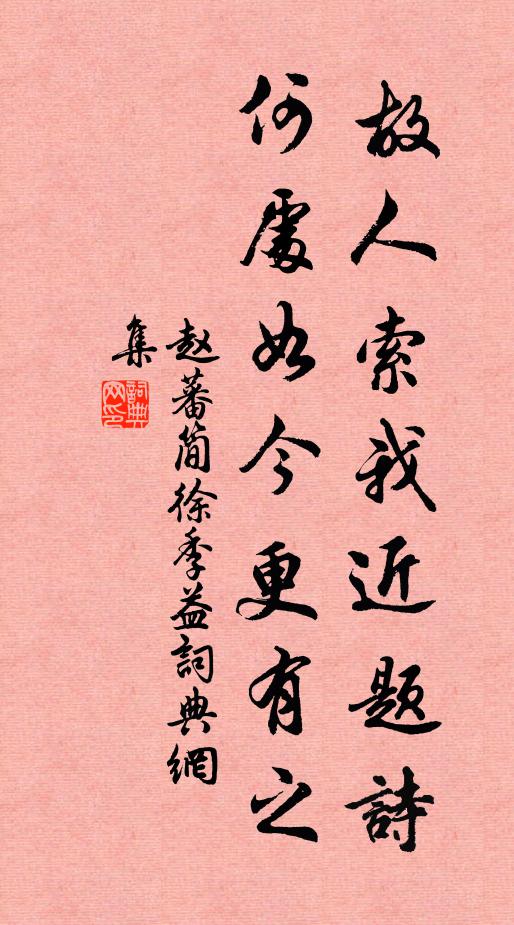 故人索我近題詩
何處如今更有之
赵蕃简徐季益詞典網
集
詞典網印